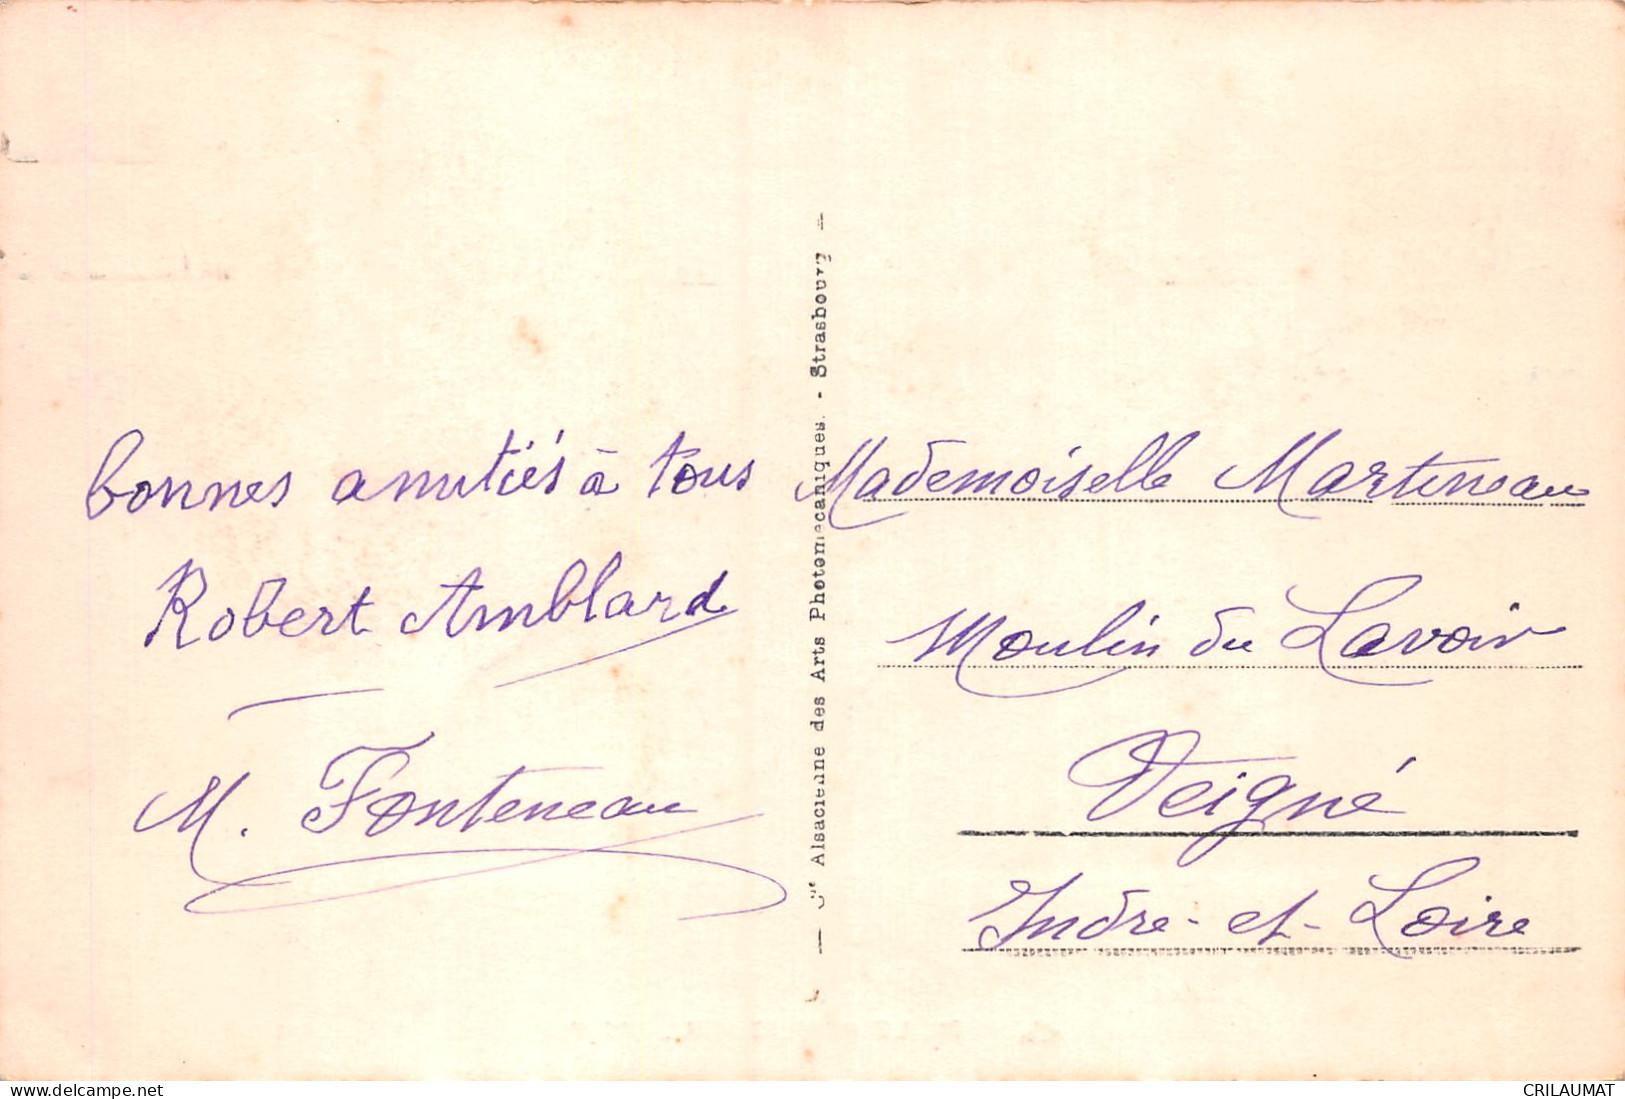 bonnes amitiés à tous
Robert Amblard
M. Fonteneau
— Cie Alsacienne des Arts Photomécaniques. - Strasbourg —
Mademoiselle Martineau
Moulin du Lavoir
Veigné
Indre-et-Loire
www.delcampe.net
CRILAUMAT